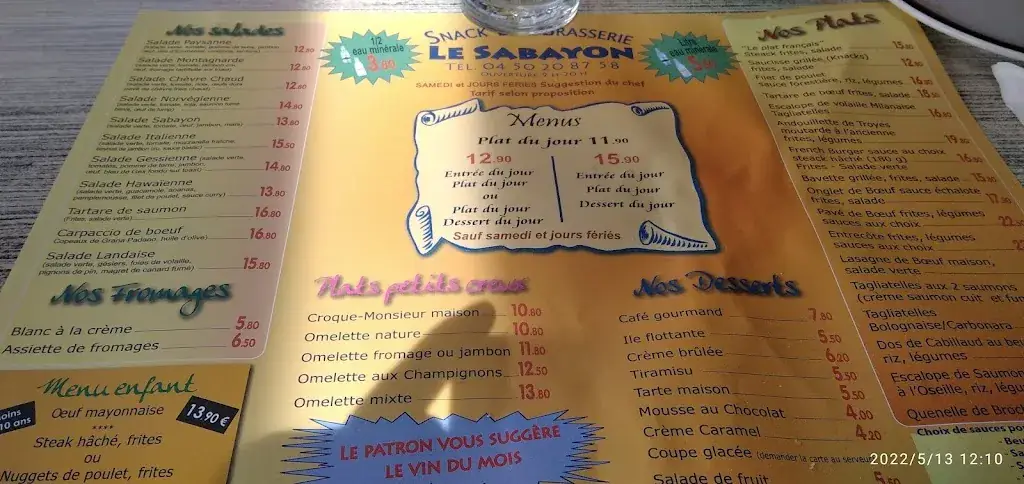 Nos salades
Salade Paysanne
12.80
Salade Montagnarde
12.80
Salade Chèvre Chaud
12.80
Salade Norvégienne
14.80
Salade Sabayon
(salade verte, tomate, oeuf, jambon, maïs)
13.80
Salade Italienne
15.50
Salade Gessienne (salade verte,
14.80
Salade Hawaïenne
(salade verte, guacamole, ananas,
pamplemousse, filet de poulet, sauce curry)
13.80
Tartare de saumon
(Frites, salade verte)
16.80
Carpaccio de boeuf
(Copeaux de Grana Padano, huile d'olive)
16.80
Salade Landaise
(salade verte, gésiers, foies de volaille,
pignons de pin, magret de canard fumé)
15.80
Nos Fromages
Blanc à la crème 5.80
Assiette de fromages 6.50
Menu enfant
13.90 €
10 ans
Œuf mayonnaise
****
Steak hâché, frites
ou
Nuggets de poulet, frites
1/2
eau minérale
3.80
SNACK BRASSERIE
LE SABAYON
TÉL. 04 50 20 87 58
SAMEDI et JOURS FÉRIÉS Suggestion du chef
Tarif selon proposition
Litre
eau minérale
Menus
Plat du jour 11.90
12.90
Entrée du jour
Plat du jour
ou
Plat du jour
Dessert du jour
15.90
Entrée du jour
Plat du jour
Dessert du jour
Sauf samedi et jours fériés
Plats petits creux
Croque-Monsieur maison 10.80
Omelette nature 10.80
Omelette fromage ou jambon 11.80
Omelette aux Champignons 12.50
Omelette mixte 13.80
LE PATRON VOUS SUGGÈRE
LE VIN DU MOIS
Nos Desserts
Café gourmand 7.80
Ile flottante 5.50
Crème brûlée 6.20
Tiramisu 5.50
Tarte maison 5.50
Mousse au Chocolat 4.00
Crème Caramel 4.20
Coupe glacée (demander la carte au serveur)
Salade de fruit
Nos Plats
"Le plat français"
Steak frites, salade
Saucisse grillée (Knacks)
frites, salade
Filet de poulet
sauce forestière, riz, légumes
Tartare de bœuf frites, salade
Escalope de volaille Milanaise
Tagliatelles
Andouillette de Troyes
moutarde à l'ancienne
frites, légumes
French Burger sauce au choix
steack hâché (180 g)
Frites - Salade verte
Bavette grillée, frites, salade
Onglet de Bœuf sauce échalote
frites, salade
Pavé de Bœuf frites, légumes
sauces aux choix
Entrecôte frites, légumes
sauces aux choix
Lasagne de Bœuf maison,
salade verte
Tagliatelles aux 2 saumons
(crème saumon cuit et
Tagliatelles
Bolognaise/Carbonara
Dos de Cabillaud au
riz, légumes
Escalope de Saumon
à l'Oseille, riz,
Quenelle de
Choix de sauces
2022/5/13 12:10